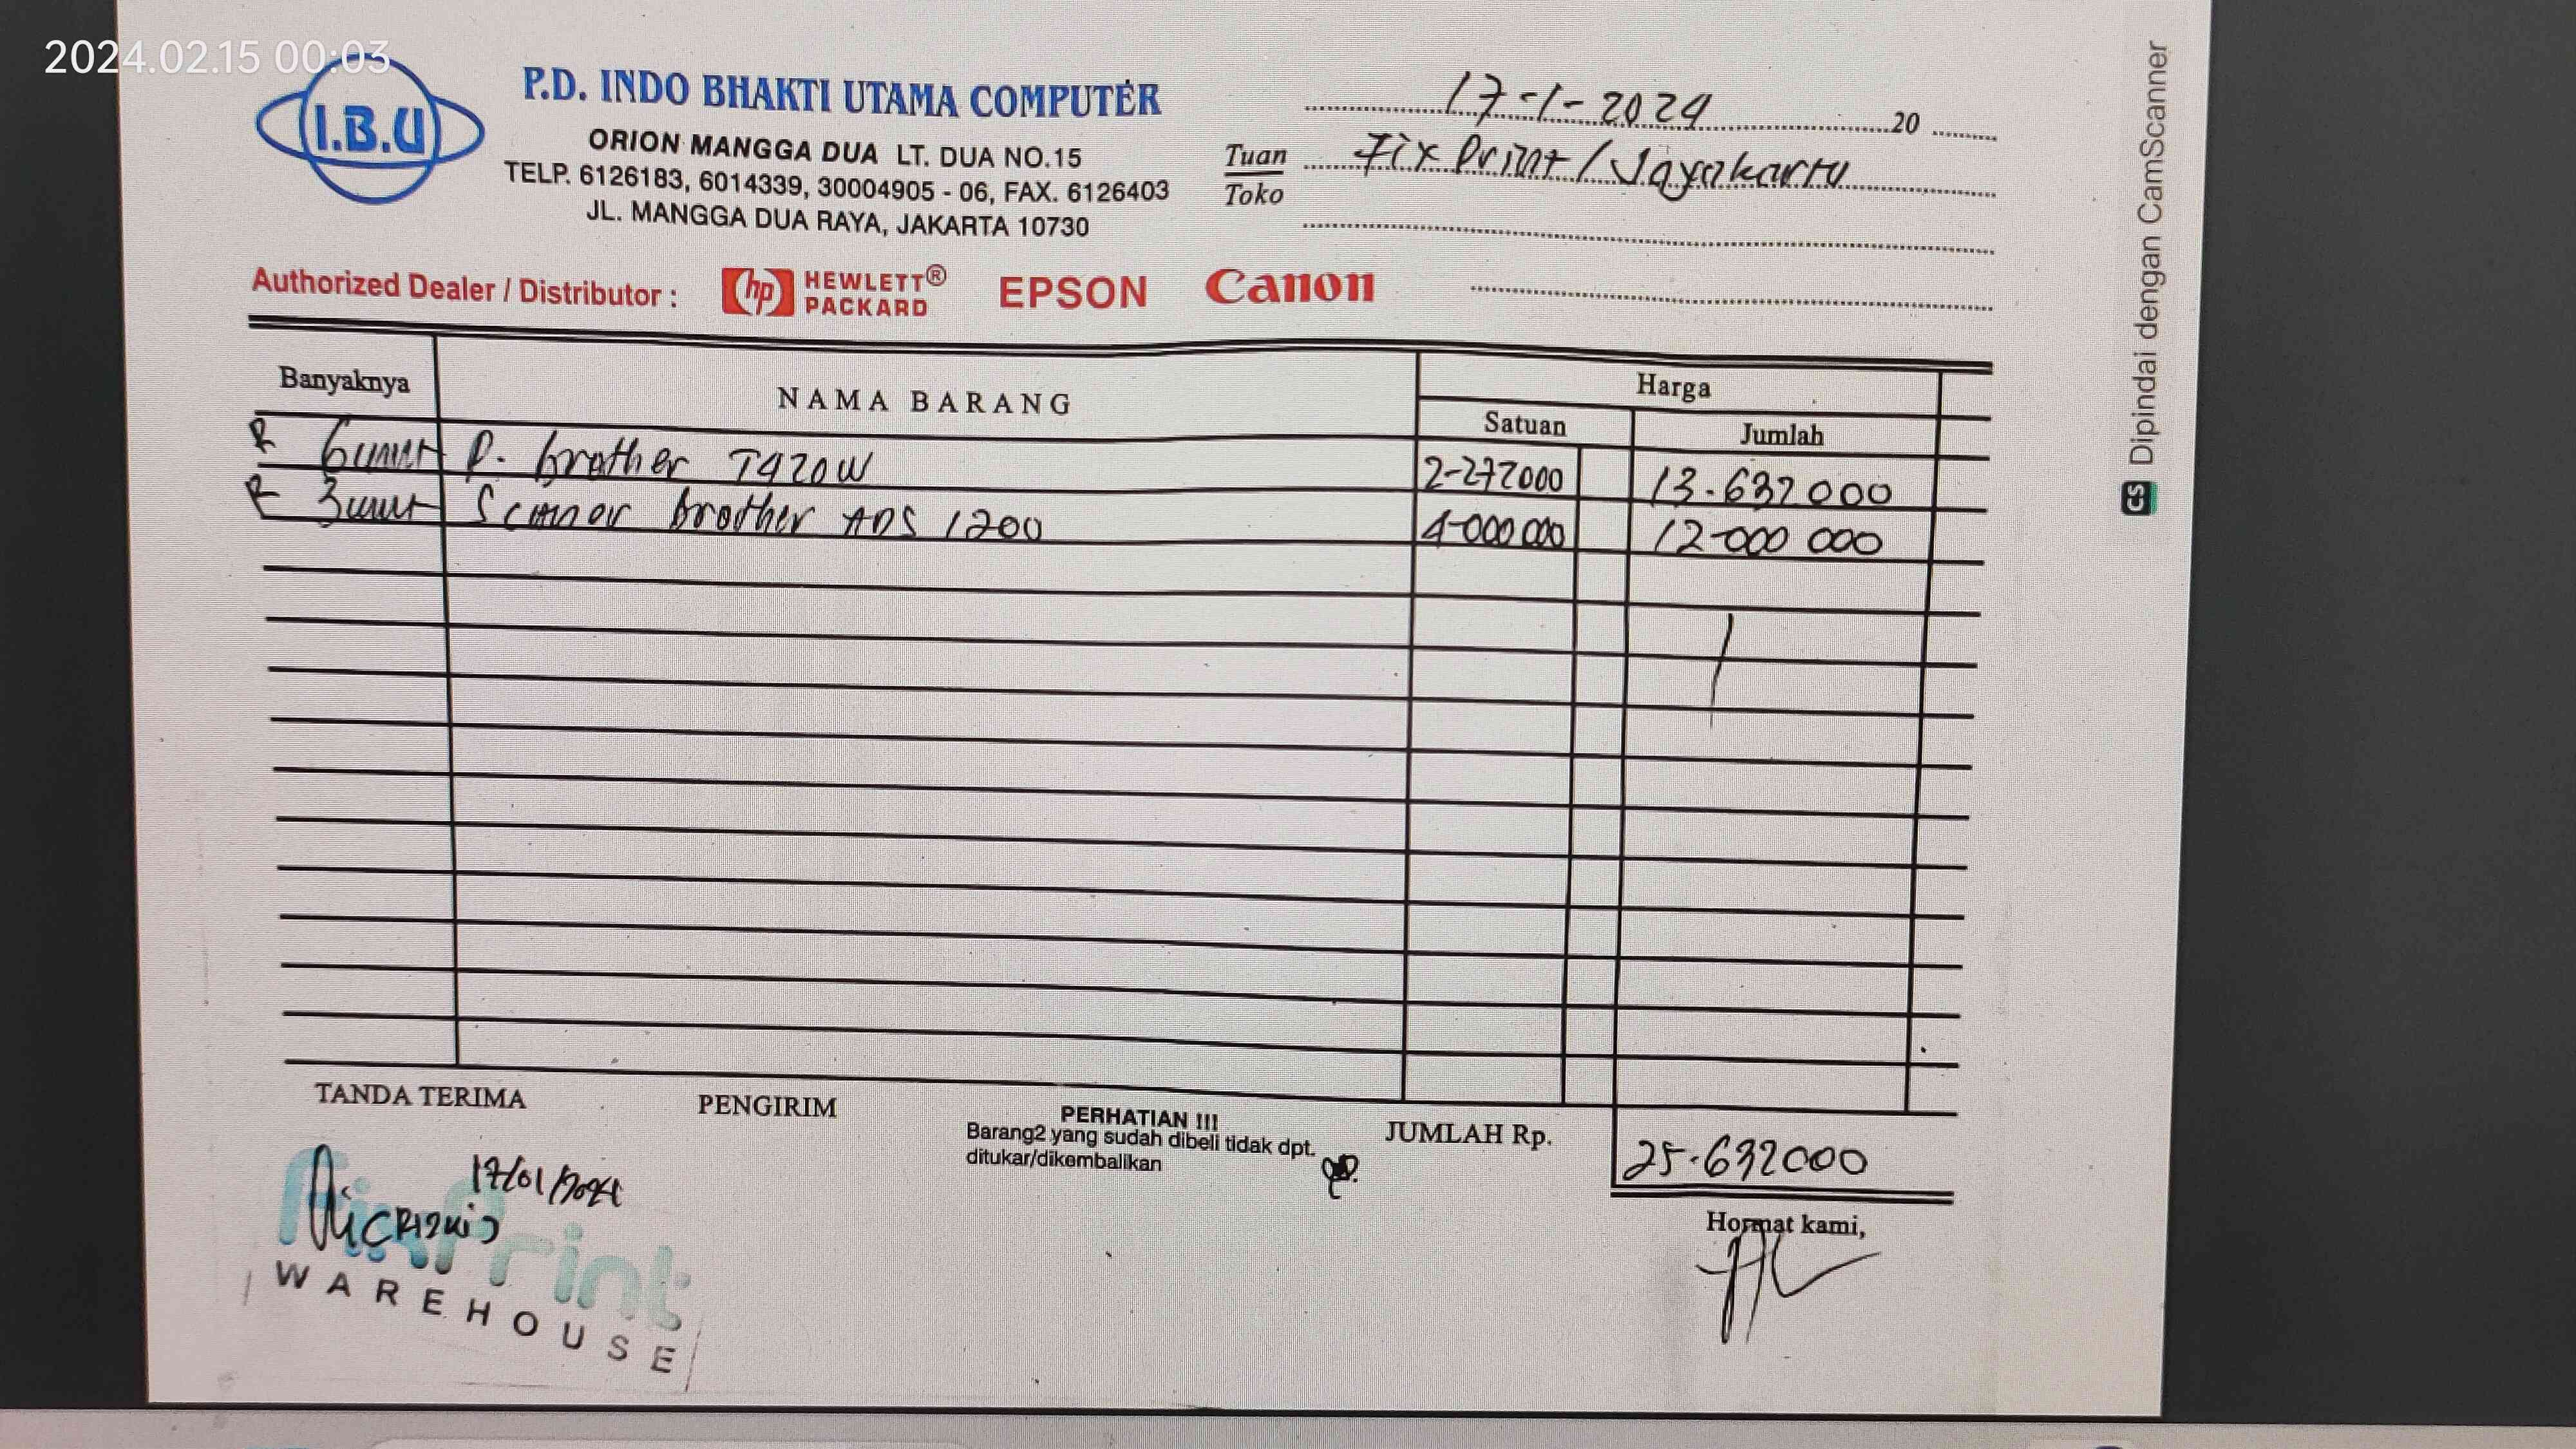 2024.02.15 00:03
I.B.U
P.D. INDO BHAKTI UTAMA COMPUTER
ORION MANGGA DUA LT. DUA NO.15
TELP. 6126183, 6014339, 30004905 - 06, FAX. 6126403
JL. MANGGA DUA RAYA, JAKARTA 10730
17-1-2024 20
Tuan Fix Print / Jayakarta
Toko
Authorized Dealer / Distributor : hp HEWLETT® PACKARD EPSON Canon
Banyaknya NAMA BARANG Harga
Satuan Jumlah
6 unit P. brother T420W 2-272000 13.632000
3 unit Scanor brother ADS 1200 4-000 000 12-000 000
TANDA TERIMA PENGIRIM PERHATIAN !!! JUMLAH Rp. 25.632000
Barang2 yang sudah dibeli tidak dpt.
ditukar/dikembalikan
17/01/2024
FixPrint
WAREHOUSE
Hormat kami,
Dipindai dengan CamScanner